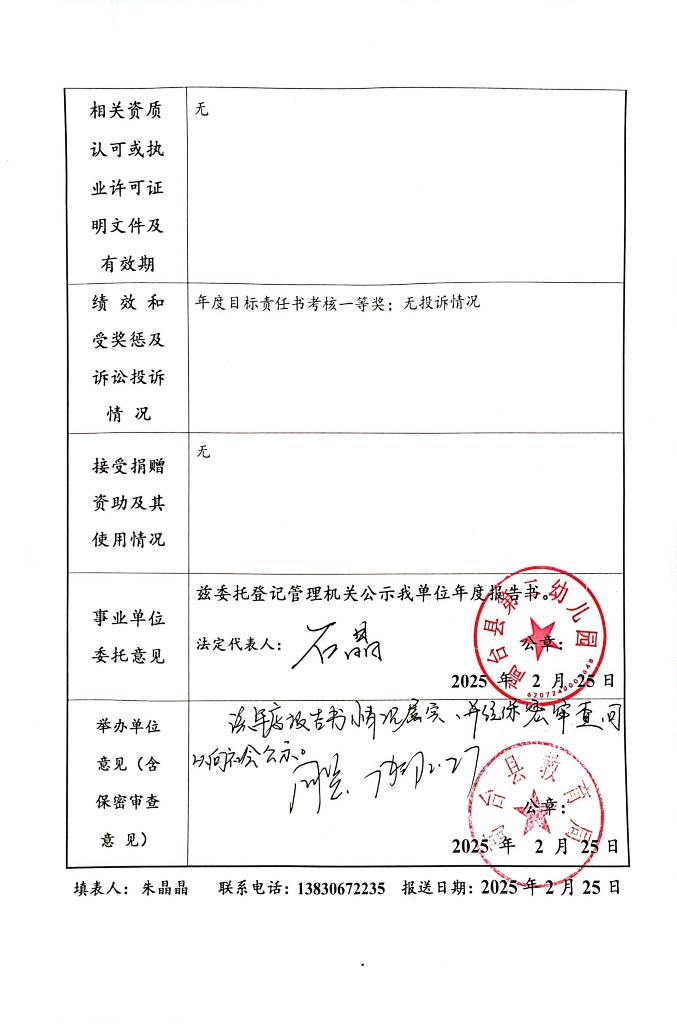 相关资质
认可或执
业许可证
明文件及
有效期
无
绩 效 和
受奖惩及
诉讼投诉
情 况
年度目标责任书考核一等奖；无投诉情况
接受捐赠
资助及其
使用情况
无
事业单位
委托意见
兹委托登记管理机关公示我单位年度报告书。
法定代表人： 石晶
公章：
2025 年 2 月 25日
高台县第一幼儿园
6207240003648
举办单位
意见（含
保密审查
意 见）
该年度报告书情况属实，并经保密审查，可
以向社会公示。
同意
2.27
公章：
高台县教育局
2025 年 2 月 25 日
填表人： 朱晶晶 联系电话：13830672235 报送日期：2025 年 2 月 25 日